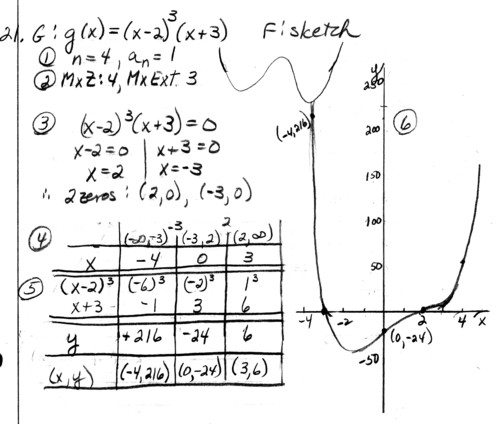 21. G: g(x)=(x-2)³(x+3) F: sketch
① n=4, aₙ=1
② MxZ: 4, MxExt. 3
③ (x-2)³(x+3)=0
x-2=0 | x+3=0
x=2 | x=-3
∴ 2 zeros: (2,0), (-3,0)
④ (-∞,-3) -3 (-3,2) 2 (2,∞)
x -4 0 3
⑤ (x-2)³ (-6)³ (-2)³ 1³
x+3 -1 3 6
y +216 -24 6
(x,y) (-4,216) (0,-24) (3,6)
y
250
⑥
(-4,216)
200
150
100
50
-4 -2 2 4 x
(0,-24)
-50